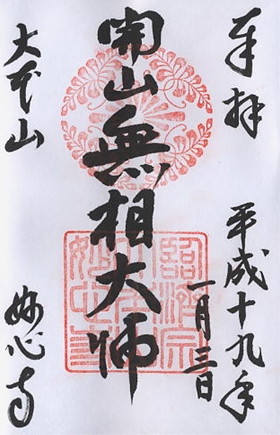 奉拝
平成十九年
一月三日
開山無相大師
大本山
妙心寺